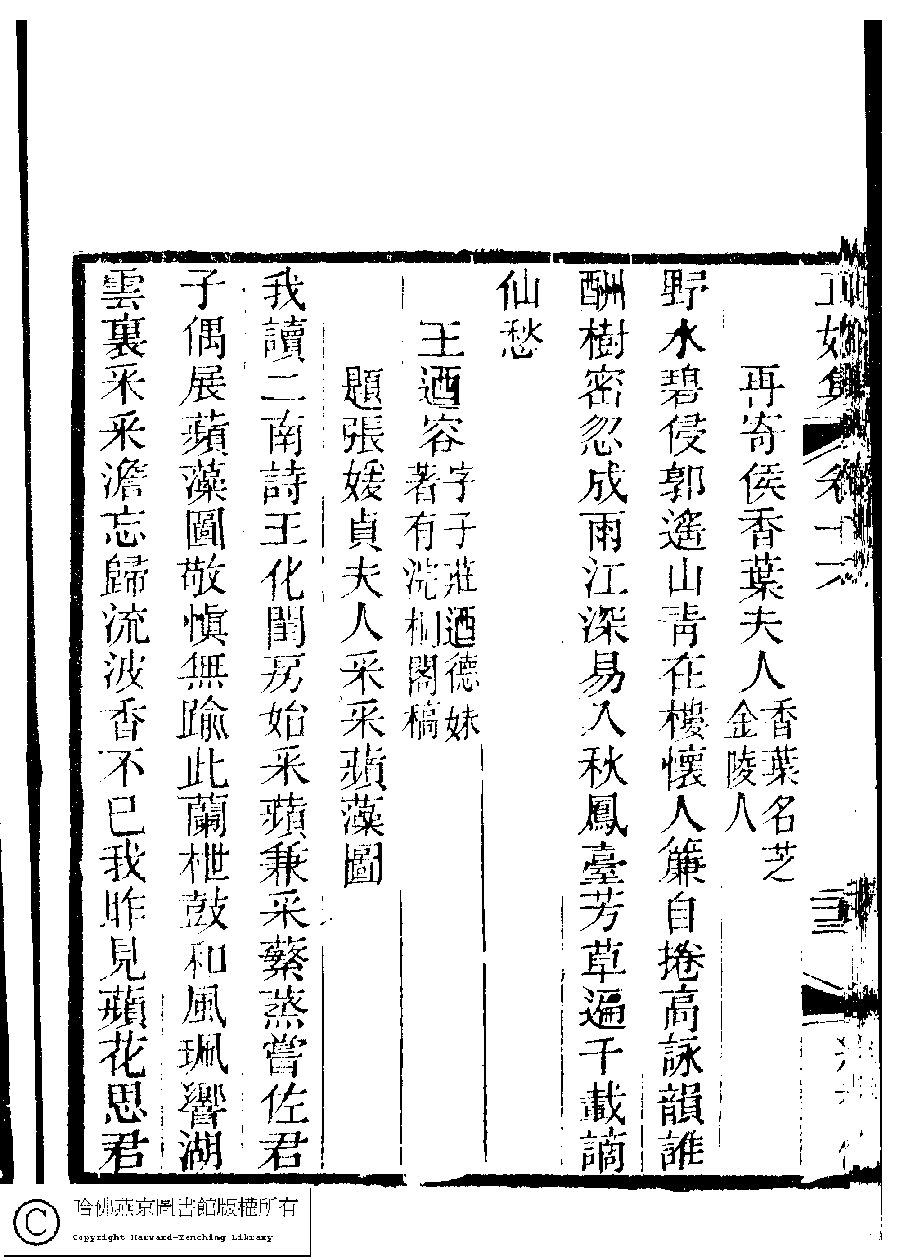 再寄侯香葉夫人香葉名芝
金陵人
野水碧侵郭遙山靑在樓懷人簾自捲高詠韻誰
酬樹密忽成雨江深易入秋鳳臺芳草遍千載謫
仙愁
王迺容字子莊迺德妹
著有浣桐閣稿
題張媛貞夫人采采蘋藻圖
我讀二南詩王化閨房始采蘋兼采蘩蒸嘗佐君
子偶展蘋藻圖敬愼無踰此蘭枻鼓和風珮響湖
雲裏采采澹忘歸流波香不已我昨見蘋花思君
哈佛燕京圖書館版權所有
Copyright Harvard-Yenching Library